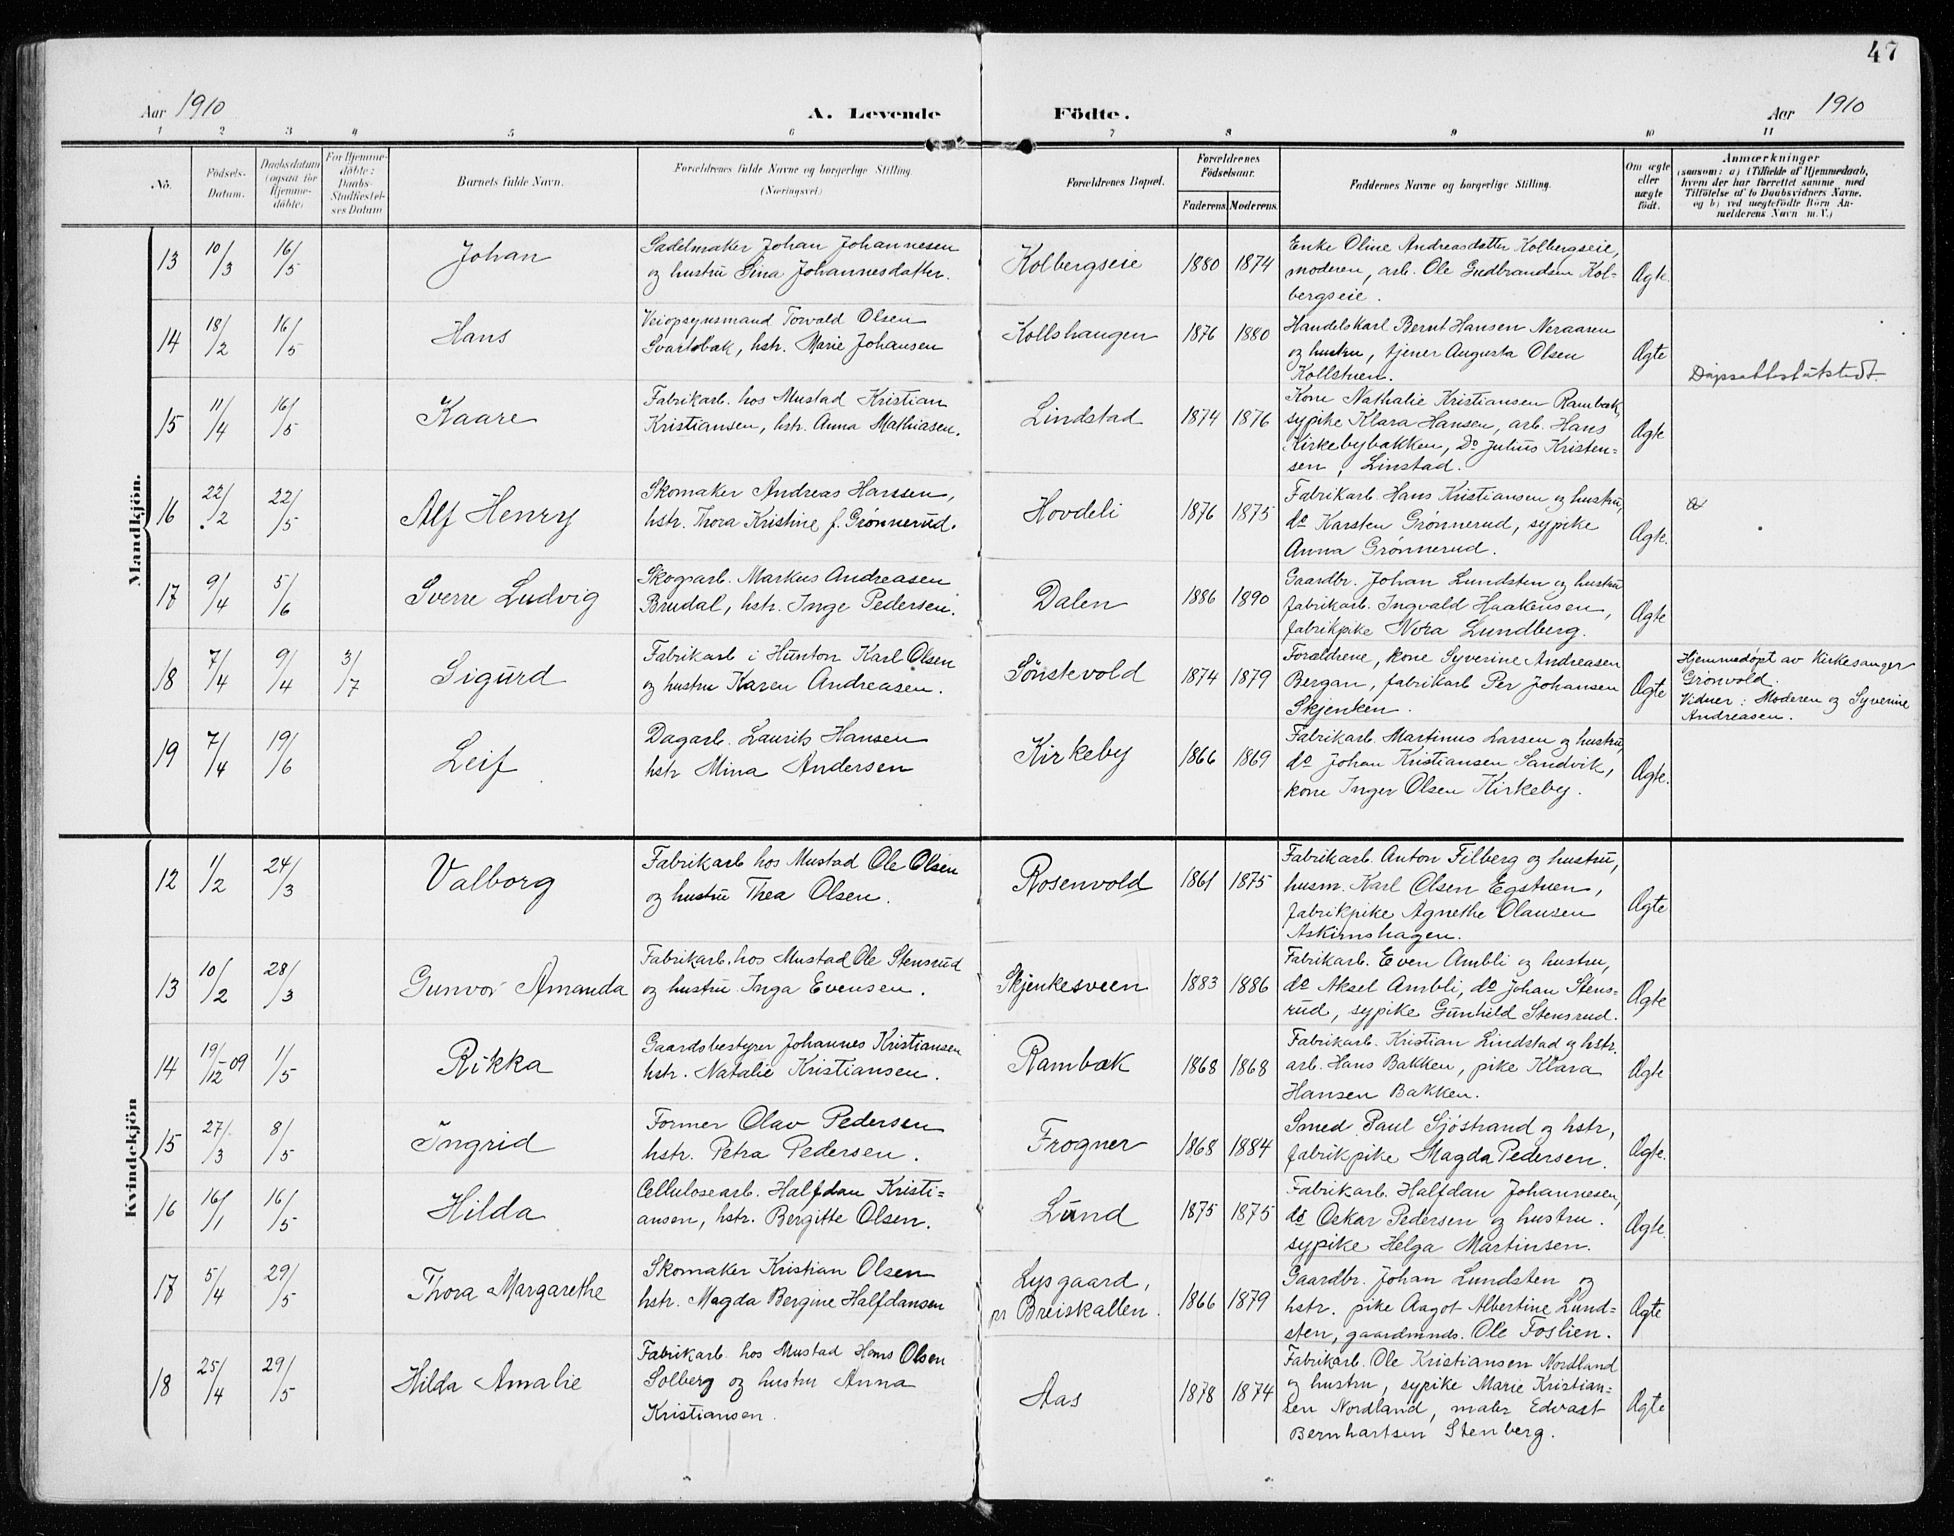 47
Aar 1910
A. Levende Födte.
Aar 1910
1 2 3 4 5 6 7 8 9 10 11
No.
Födsels-
Datum.
Daabsdatum
(ogsaa for
Hjemme-
döbte)
For Hjemme-
döbte:
Daabs-
Stadfæstel-
ses Datum
Barnets fulde Navn.
Forældrenes fulde Navne og borgerlige Stilling
(Næringsvei)
Forældrenes Bopæl.
Forældrenes
Födselsaar.
Faderens. Moderens.
Faddernes Navne og borgerlige Stilling.
Om ægte
eller
uægte
födt.
Anmærkninger
(saasom: a) i Tilfælde af Hjemmedaab,
hvem der har forrettet samme med
Tilföielse af to Daabsvidners Navne.
og b) ved uægtefödte Börn An-
melderens Navn m. V.)
Mandkjön.
13 10/3 16/5 Johan
Sadelmaker Johan Johannesen
og hustru Lina Johannesdatter.
Kolbergseie 1880 1874
Enke Oline Andreasdatter Kolbergseie,
moderen, arb. Ole Gudbrandsen Kol-
bergseie.
Ægte
14 18/2 16/5 Hans
Veiopsynsmand Torvald Olsen
Svartbak, hstr. Marie Johansen
Kollshaugen 1876 1880
Handelskarl Bernt Hansen Neraaren
og hustru, tjener Augusta Olsen
Kollstuen.
Ægte
Dåpsattest utstedt.
15 11/4 16/5 Kaare
Fabrikarb. hos Mustad Kristian
Kristiansen, hstr. Anna Mathiasen.
Lindstad 1874 1876
Kone Nathalie Kristiansen Rambæk,
sypike Klara Hansen, arb. Hans
Kirkebybakken, Do Julius Kristen-
sen, Linstad.
Ægte
16 22/2 22/5 Alf Henry
Skomaker Andreas Hansen,
hstr. Thora Kristine f. Grønnerud.
Hovdeli 1876 1875
Fabrikarb. Hans Kristiansen og hustru,
do Karsten Grønnerud, sypike
Anna Grønnerud.
Ægte.
17 9/4 5/6 Sverre Ludvig
Skogsarb. Markus Andreasen
Brudal, hstr. Inge Pedersen.
Dalen 1886 1890
Gaardbr. Johan Lundsten og hustru
fabrikarb. Ingvald Haakensen,
fabrikpike Nora Lundberg.
Ægte
18 7/4 9/4 3/7 Sigurd
Fabrikarb i Hunton Karl Olsen
og hustru Karen Andreasen.
Sønstevold 1874 1879
Forældrene, kone Syverine Andreasen
Bergan, fabrikarb Per Johansen
Skjenken.
Ægte
Hjemmedøpt av Kirkesanger
Grønvold.
Vidner: Moderen og Syverine
Andreasen.
19 7/4 19/6 Leif
Dagarb. Laurits Hansen
hstr Mina Andersen
Kirkeby 1866 1869
Fabrikarb. Martinus Larsen og hustru,
do Johan Kristiansen Sandvik,
kone Inger Olsen Kirkeby.
Ægte.
Kvindekjön
12 1/2 24/3 Valborg
Fabrikarb hos Mustad Ole Olsen
og hustru Thea Olsen.
Rosenvold 1861 1875
Fabrikarb. Anton Filberg og hustru,
husm. Karl Olsen Egstuen,
fabrikpike Agnethe Olausen
Askirnshagen.
Ægte
13 10/2 28/3 Gunvor Amanda
Fabrikarb. hos Mustad Ole Stensrud
og hustru Inga Evensen.
Skjenkesveen 1883 1886
Fabrikarb. Even Ambli og hustru,
do Aksel Ambli, do Johan Stens-
rud, sypike Gunhild Stensrud.
Ægte
14 19/12 09 1/5 Rikka
Gaardsbestyrer Johannes Kristiansen
hstr. Natalie Kristiansen.
Rambæk 1868 1868
Fabrikarb. Kristian Lindstad og hstr.
arb. Hans Bakken, pike Klara
Hansen Bakken.
Ægte
15 27/3 8/5 Ingrid
Former Olav Pedersen
hstr. Petra Pedersen.
Frogner 1868 1884
Smed Paul Sjöstrand og hstr,
fabrikpike Magda Pedersen.
Ægte.
16 16/1 16/5 Hilda
Cellulosearb. Halfdan Kristi-
ansen, hstr. Bergitte Olsen.
Lund 1875 1875
Fabrikarb. Halfdan Johannesen,
do Oskar Pedersen og hustru.
sypike Helga Martinsen.
Ægte.
17 5/4 29/5 Thora Margarethe
Skomaker Kristian Olsen
hstr. Magda Bergine Halfdansen
Lysgaard,
pr Breiskallen. 1866 1879
Gaardbr. Johan Lundsten og
hstr. pike Aagot Albertine Lund-
sten, gaardmnds. Ole Foslien.
Ægte
18 25/4 29/5 Hilda Amalie
Fabrikarb hos Mustad Hans Olsen
Solberg og hustru Anna
Kristiansen.
Aas 1878 1874
Fabrikarb. Ole Kristiansen Nordland
og hustru, sypike Marie Kristian-
sen Nordland, maler Edvart
Bernhartsen Stenberg.
Ægte